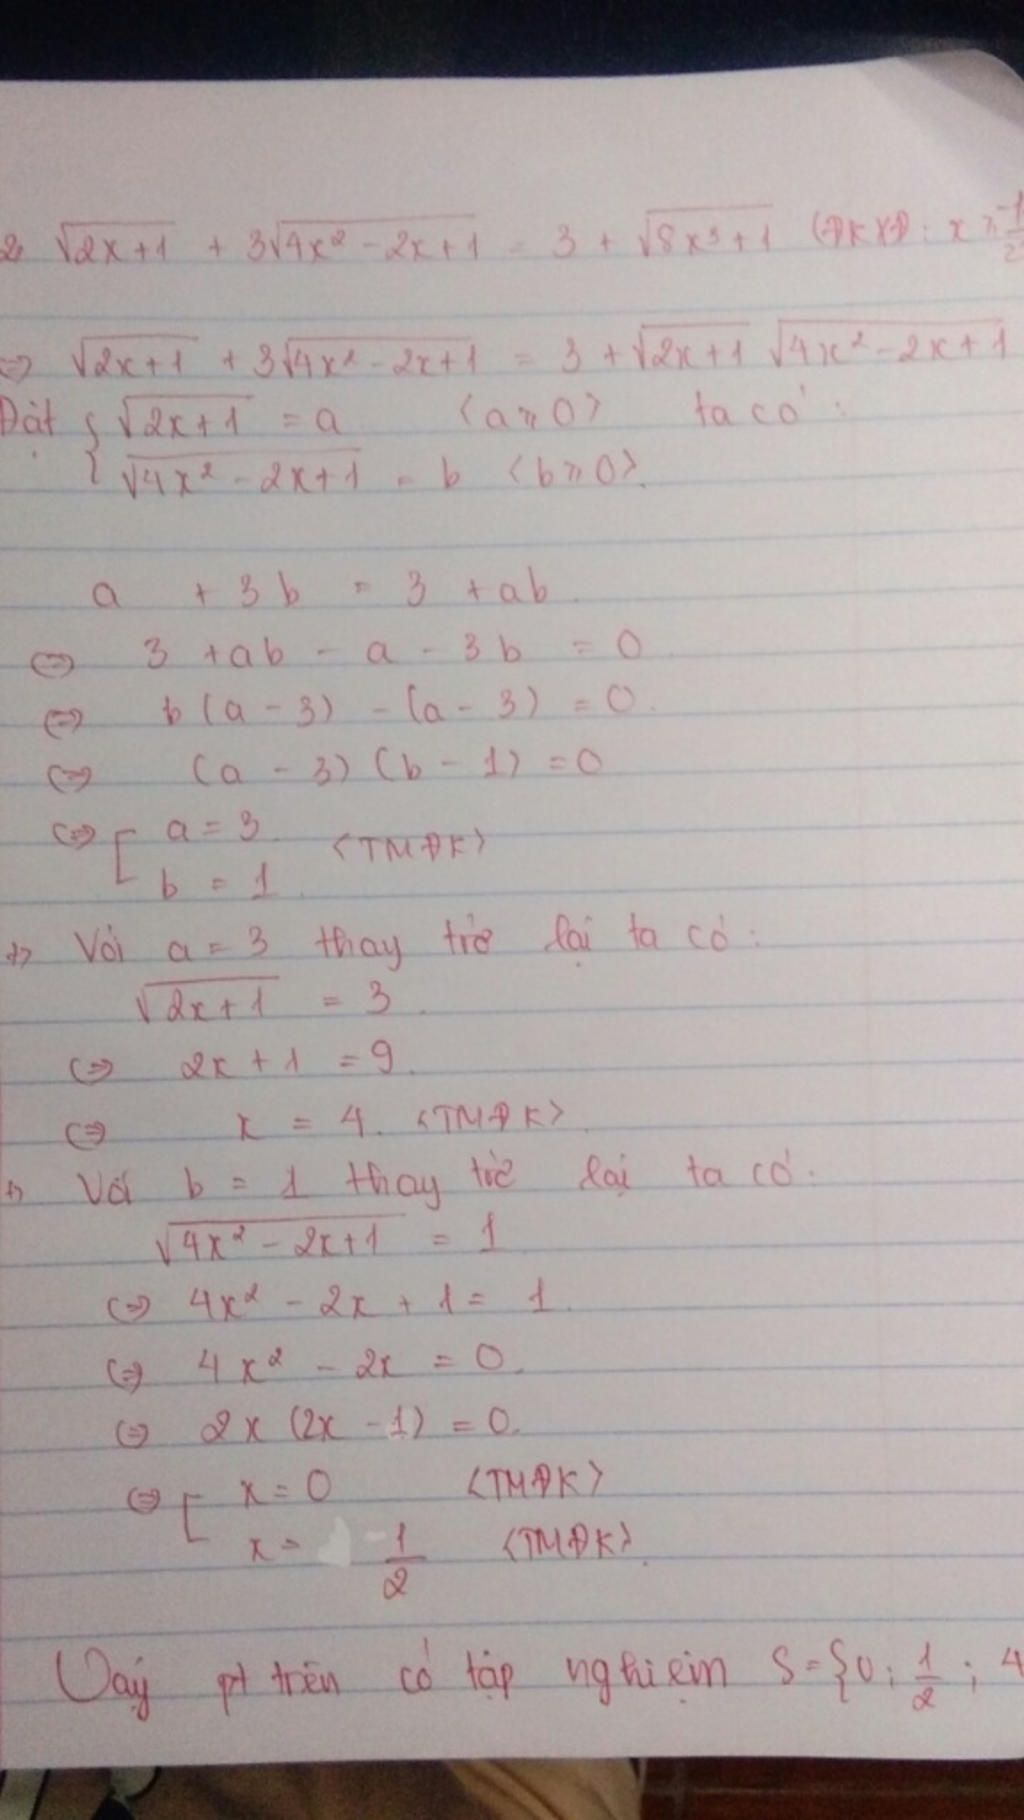 2, √(2x+1) + 3√(4x² - 2x+1) = 3 + √(8x³+1) (ĐKXĐ: x ≥ -1/2
⇔ √(2x+1) + 3√(4x² - 2x+1) = 3 + √(2x+1) √(4x² - 2x+1)
Đặt { √(2x+1) = a <a ≥ 0> ta có:
√(4x² - 2x+1) = b <b ≥ 0>.
a + 3b = 3 + ab.
⇔ 3 + ab - a - 3b = 0
⇔ b(a - 3) - (a - 3) = 0.
⇔ (a - 3)(b - 1) = 0
⇔ [ a = 3 <TMĐK>
b = 1.
+> Với a = 3 thay trở lại ta có:
√(2x+1) = 3.
⇔ 2x + 1 = 9.
⇔ x = 4. <TMĐK>
+> Với b = 1 thay trở lại ta có:
√(4x² - 2x+1) = 1
⇔ 4x² - 2x + 1 = 1.
⇔ 4x² - 2x = 0.
⇔ 2x (2x - 1) = 0.
⇔ [ x = 0 <TMĐK>
x = 1/2 <TMĐK>.
Vậy pt trên có tập nghiệm S = {0; 1/2; 4